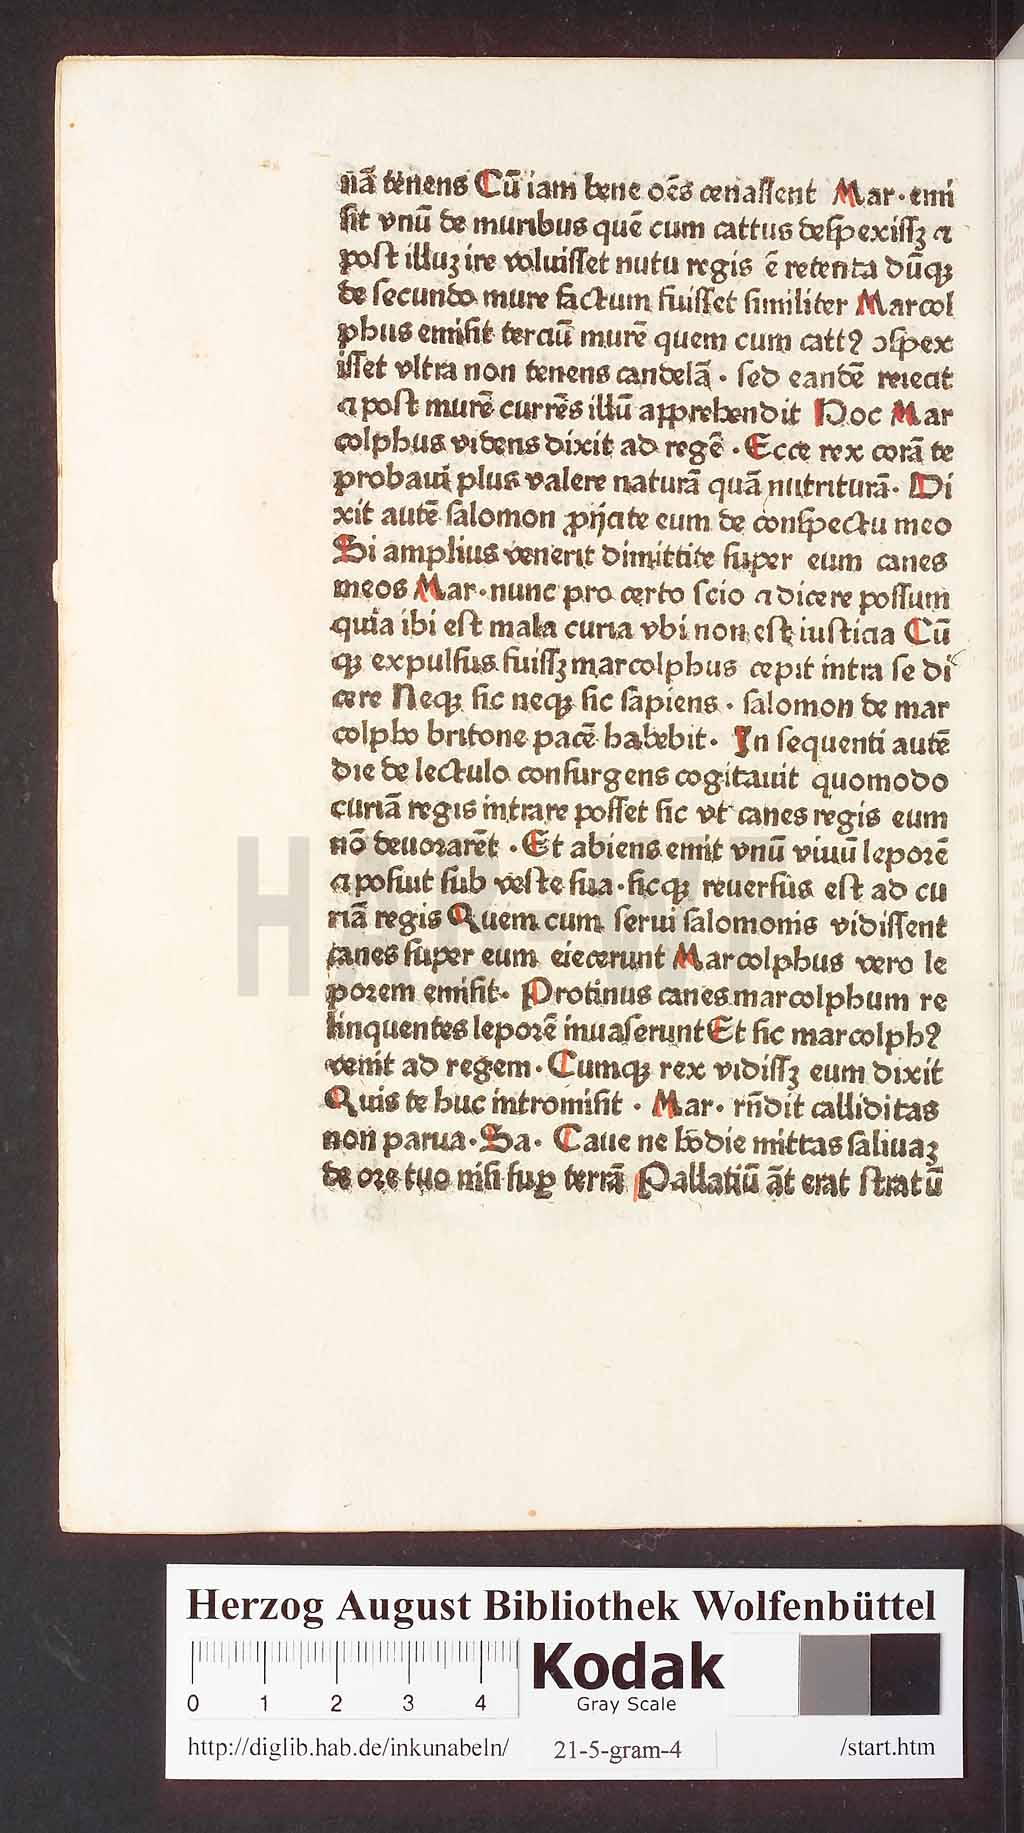 nā tenens Cū iam bene oēs cenassent Mar · emi
sit vnū de muribus quē cum cattus despexissꝫ ⁊
post illuꝫ ire voluisset nutu regis ē retenta dūqꝫ
de secundo mure factum fuisset similiter Marcol
phus emisit terciū murē quem cum cattꝰ ↄspex
isset vltra non tenens candelā · sed eandē reiecit
⁊ post murē currēs illū apprehendit Hoc Mar
colphus videns dixit ad regē · Ecce rex corā te
probaui plus valere naturā quā nutriturā · Di
xit autē salomon ꝓijcite eum de conspectu meo
Si amplius venerit dimittite super eum canes
meos Mar · nunc pro certo scio ⁊ dicere possum
quia ibi est mala curia vbi non est iusticia Cū
qꝫ expulsus fuissꝫ marcolphus cepit intra se di
cere Neqꝫ sic neqꝫ sic sapiens · salomon de mar
colpho britone pacē habebit · In sequenti autē
die de lectulo consurgens cogitauit quomodo
curiā regis intrare posset sic vt canes regis eum
nō deuorarēt · Et abiens emit vnū viuū leporē
⁊ posuit sub veste sua · sicqꝫ reuersus est ad cu
riā regis Quem cum serui salomonis vidissent
canes super eum eiecerunt Marcolphus vero le
porem emisit · Protinus canes marcolphum re
linquentes leporē inuaserunt Et sic marcolphꝰ
venit ad regem · Cumqꝫ rex vidissꝫ eum dixit
Quis te huc intromisit · Mar · rn̄dit calliditas
non parua · Sa · Caue ne hodie mittas saliuaꝫ
de ore tuo nisi suꝑ terrā Pallatiū āt erat stratū
HAB-WF
Herzog August Bibliothek Wolfenbüttel
0 1 2 3 4
Kodak
Gray Scale
http://diglib.hab.de/inkunabeln/ 21-5-gram-4 /start.htm